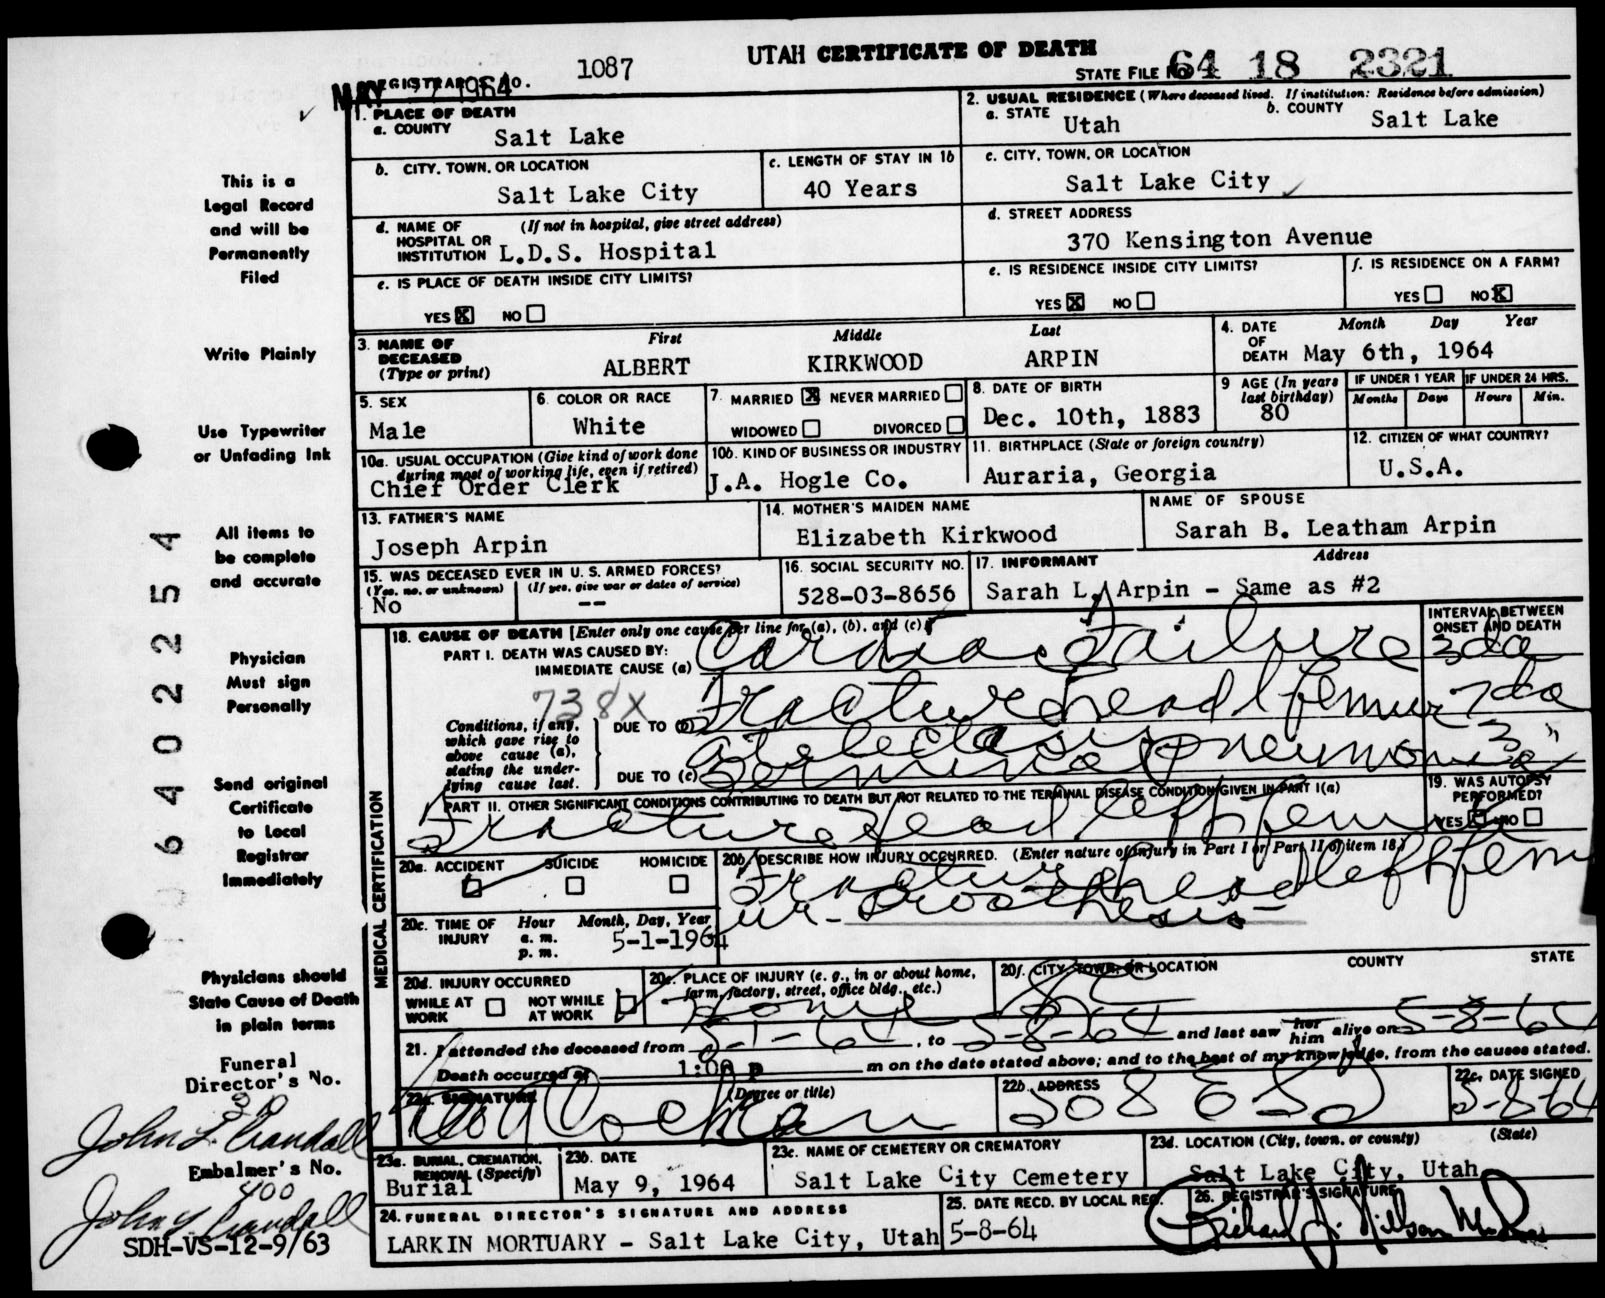 UTAH CERTIFICATE OF DEATH
REGISTRAR'S NO. 1087
MAY 1964
STATE FILE NO. 64 18 2321
1. PLACE OF DEATH
a. COUNTY Salt Lake
2. USUAL RESIDENCE (Where deceased lived. If institution: Residence before admission)
a. STATE Utah b. COUNTY Salt Lake
b. CITY, TOWN, OR LOCATION Salt Lake City
c. LENGTH OF STAY IN 1b 40 Years
c. CITY, TOWN, OR LOCATION Salt Lake City
d. NAME OF HOSPITAL OR INSTITUTION (If not in hospital, give street address) L.D.S. Hospital
d. STREET ADDRESS 370 Kensington Avenue
e. IS PLACE OF DEATH INSIDE CITY LIMITS?
YES X NO
e. IS RESIDENCE INSIDE CITY LIMITS?
YES X NO
f. IS RESIDENCE ON A FARM?
YES NO X
3. NAME OF DECEASED (Type or print)
First Middle Last
ALBERT KIRKWOOD ARPIN
4. DATE OF DEATH Month Day Year
May 6th, 1964
5. SEX Male
6. COLOR OR RACE White
7. MARRIED X NEVER MARRIED
WIDOWED DIVORCED
8. DATE OF BIRTH Dec. 10th, 1883
9 AGE (In years last birthday) 80
IF UNDER 1 YEAR Months Days
IF UNDER 24 HRS. Hours Min.
10a. USUAL OCCUPATION (Give kind of work done during most of working life, even if retired)
Chief Order Clerk
10b. KIND OF BUSINESS OR INDUSTRY
J.A. Hogle Co.
11. BIRTHPLACE (State or foreign country)
Auraria, Georgia
12. CITIZEN OF WHAT COUNTRY?
U.S.A.
13. FATHER'S NAME
Joseph Arpin
14. MOTHER'S MAIDEN NAME
Elizabeth Kirkwood
NAME OF SPOUSE
Sarah B. Leatham Arpin
15. WAS DECEASED EVER IN U. S. ARMED FORCES?
(Yes, no, or unknown) (If yes, give war or dates of service)
No --
16. SOCIAL SECURITY NO.
528-03-8656
17. INFORMANT Address
Sarah L. Arpin - Same as #2
MEDICAL CERTIFICATION
18. CAUSE OF DEATH [Enter only one cause per line for (a), (b), and (c).]
INTERVAL BETWEEN ONSET AND DEATH
PART I. DEATH WAS CAUSED BY:
IMMEDIATE CAUSE (a) Cardiac Failure 3 da
738X
Conditions, if any, which gave rise to above cause (a), stating the underlying cause last.
DUE TO (b) Fracture head l femur 7 da
atelectasis
DUE TO (c) Terminal Pneumonia 3 "
PART II. OTHER SIGNIFICANT CONDITIONS CONTRIBUTING TO DEATH BUT NOT RELATED TO THE TERMINAL DISEASE CONDITION GIVEN IN PART I(a)
Fracture Head left Femur
19. WAS AUTOPSY PERFORMED?
YES NO
20a. ACCIDENT SUICIDE HOMICIDE
20b. DESCRIBE HOW INJURY OCCURRED. (Enter nature of injury in Part I or Part II of item 18.)
Fracture head left fem
ur - Prosthesis
20c. TIME OF INJURY Hour Month, Day, Year
a. m.
p. m.
5-1-1964
20d. INJURY OCCURRED
WHILE AT WORK NOT WHILE AT WORK
20e. PLACE OF INJURY (e. g., in or about home, farm, factory, street, office bldg., etc.)
Home
20f. CITY, TOWN, OR LOCATION COUNTY STATE
21. I attended the deceased from 5-1-64, to 5-8-64 and last saw her him alive on 5-8-64
Death occurred at 1:00 p m on the date stated above; and to the best of my knowledge, from the causes stated.
22a. SIGNATURE (Degree or title)
Cochran
22b. ADDRESS
508 E So
22c. DATE SIGNED
5-8-64
23a. BURIAL, CREMATION, REMOVAL (Specify)
Burial
23b. DATE
May 9, 1964
23c. NAME OF CEMETERY OR CREMATORY
Salt Lake City Cemetery
23d. LOCATION (City, town, or county) (State)
Salt Lake City, Utah
24. FUNERAL DIRECTOR'S SIGNATURE AND ADDRESS
LARKIN MORTUARY - Salt Lake City, Utah
25. DATE RECD. BY LOCAL REG.
5-8-64
26. REGISTRAR'S SIGNATURE
This is a
Legal Record
and will be
Permanently
Filed
Write Plainly
Use Typewriter
or Unfading Ink
All items to
be complete
and accurate
Physician
Must sign
Personally
Send original
Certificate
to Local
Registrar
Immediately
Physicians should
State Cause of Death
in plain terms
Funeral
Director's No.
John L. Crandall
Embalmer's No.
400
John L Crandall
SDH-VS-12-9/63
0 6 4 0 2 2 5 4